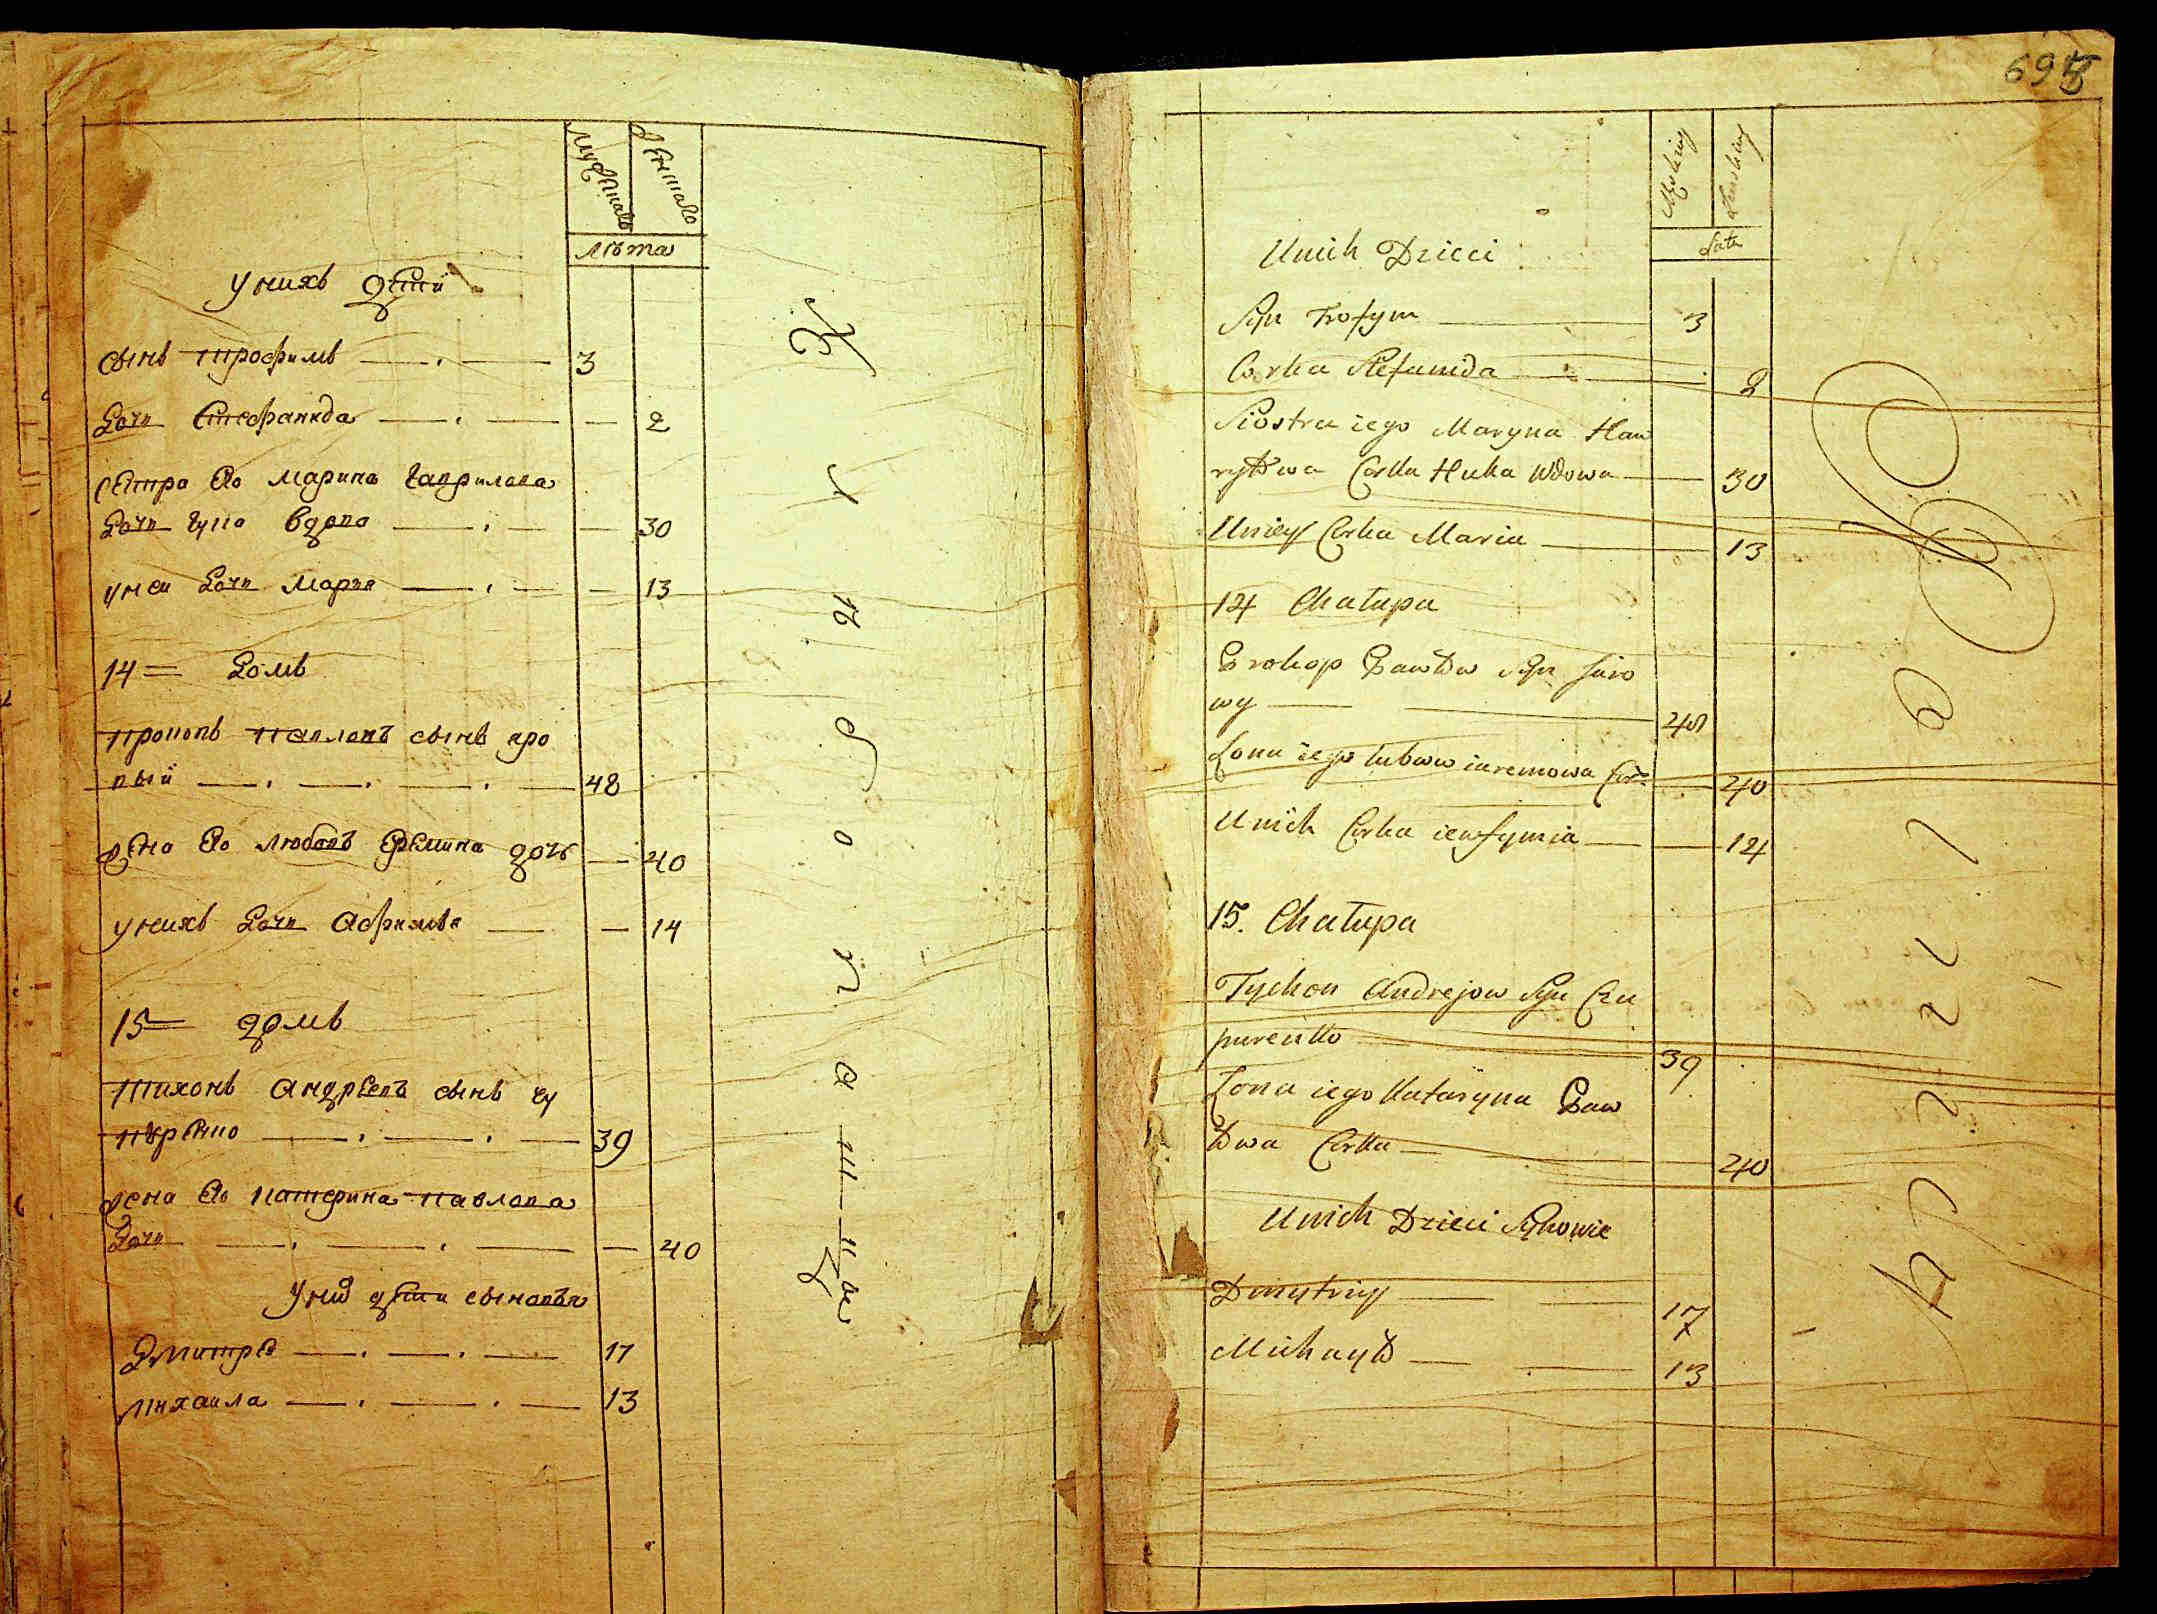 Мужска
Женшаго
лѣта
У нихъ дети
сынъ трофимъ 3
дочи Стефанида 2
сестра Ево Марина Гаврилова
дочи гука вдова 30
у неи дочи Мария 13
14 домъ
Прокопъ Павловъ сынъ яро
вый 48
жена Ево Любовъ Еремина дочь 40
у нихъ дочи Афимья 14
15 домъ
Тихонъ Андреевъ сынъ чу
перенко 39
жена Ево Катерина Павлова
дочи 40
У них дети сыновья
Дмитреи 17
Михаила 13
695
Męskiey
Żenskiey
Lata
Unich Dzieci
Syn Trofym 3
Corka Stefanida 2
Siostra iego Maryna Haw
ryłowa Corka Huka Wdowa 30
Uniey Corka Maria 13
14 Chałupa
Prokop Pawłow Syn Jaro
wy 48
Żona iego Lubow iaremowa Cor: 40
Unich Corka iewfymia 14
15. Chałupa
Tychon Andrejow Syn Czu
purenko 39
Żona iego Kataryna Paw
łowa Corka 40
Unich Dzieci Synowie
Dmytriy 17
Michayło 13